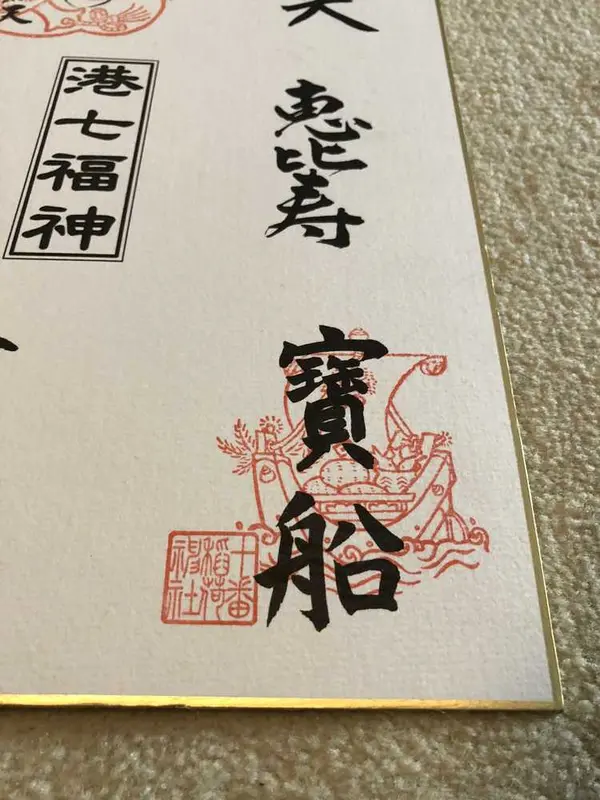 恵比寿
寶船
十番
稲荷
神社
港七福神